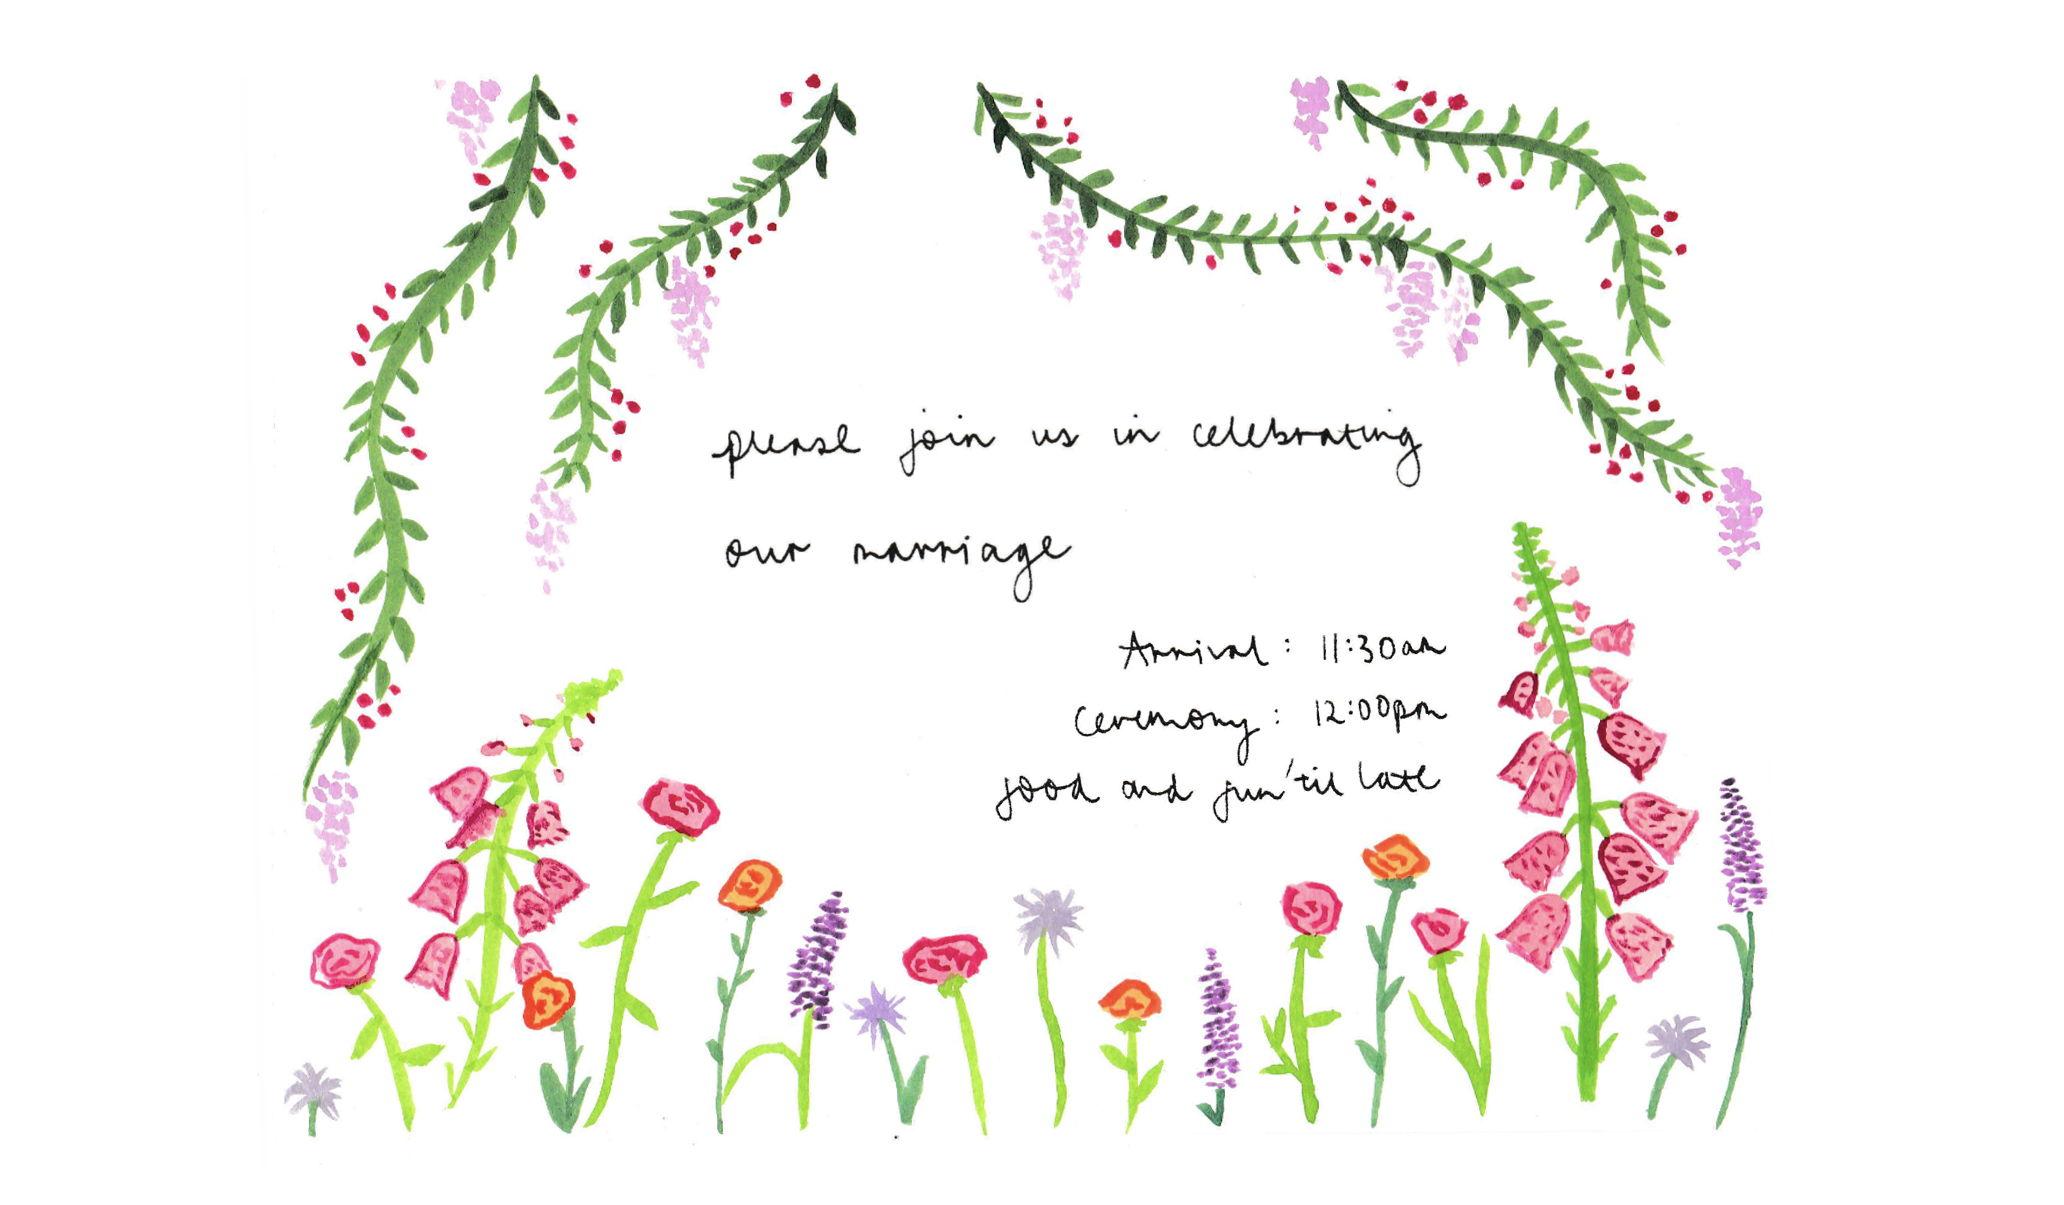 please join us in celebrating
our marriage
Arrival: 11:30am
Ceremony: 12:00pm
food and fun 'til late